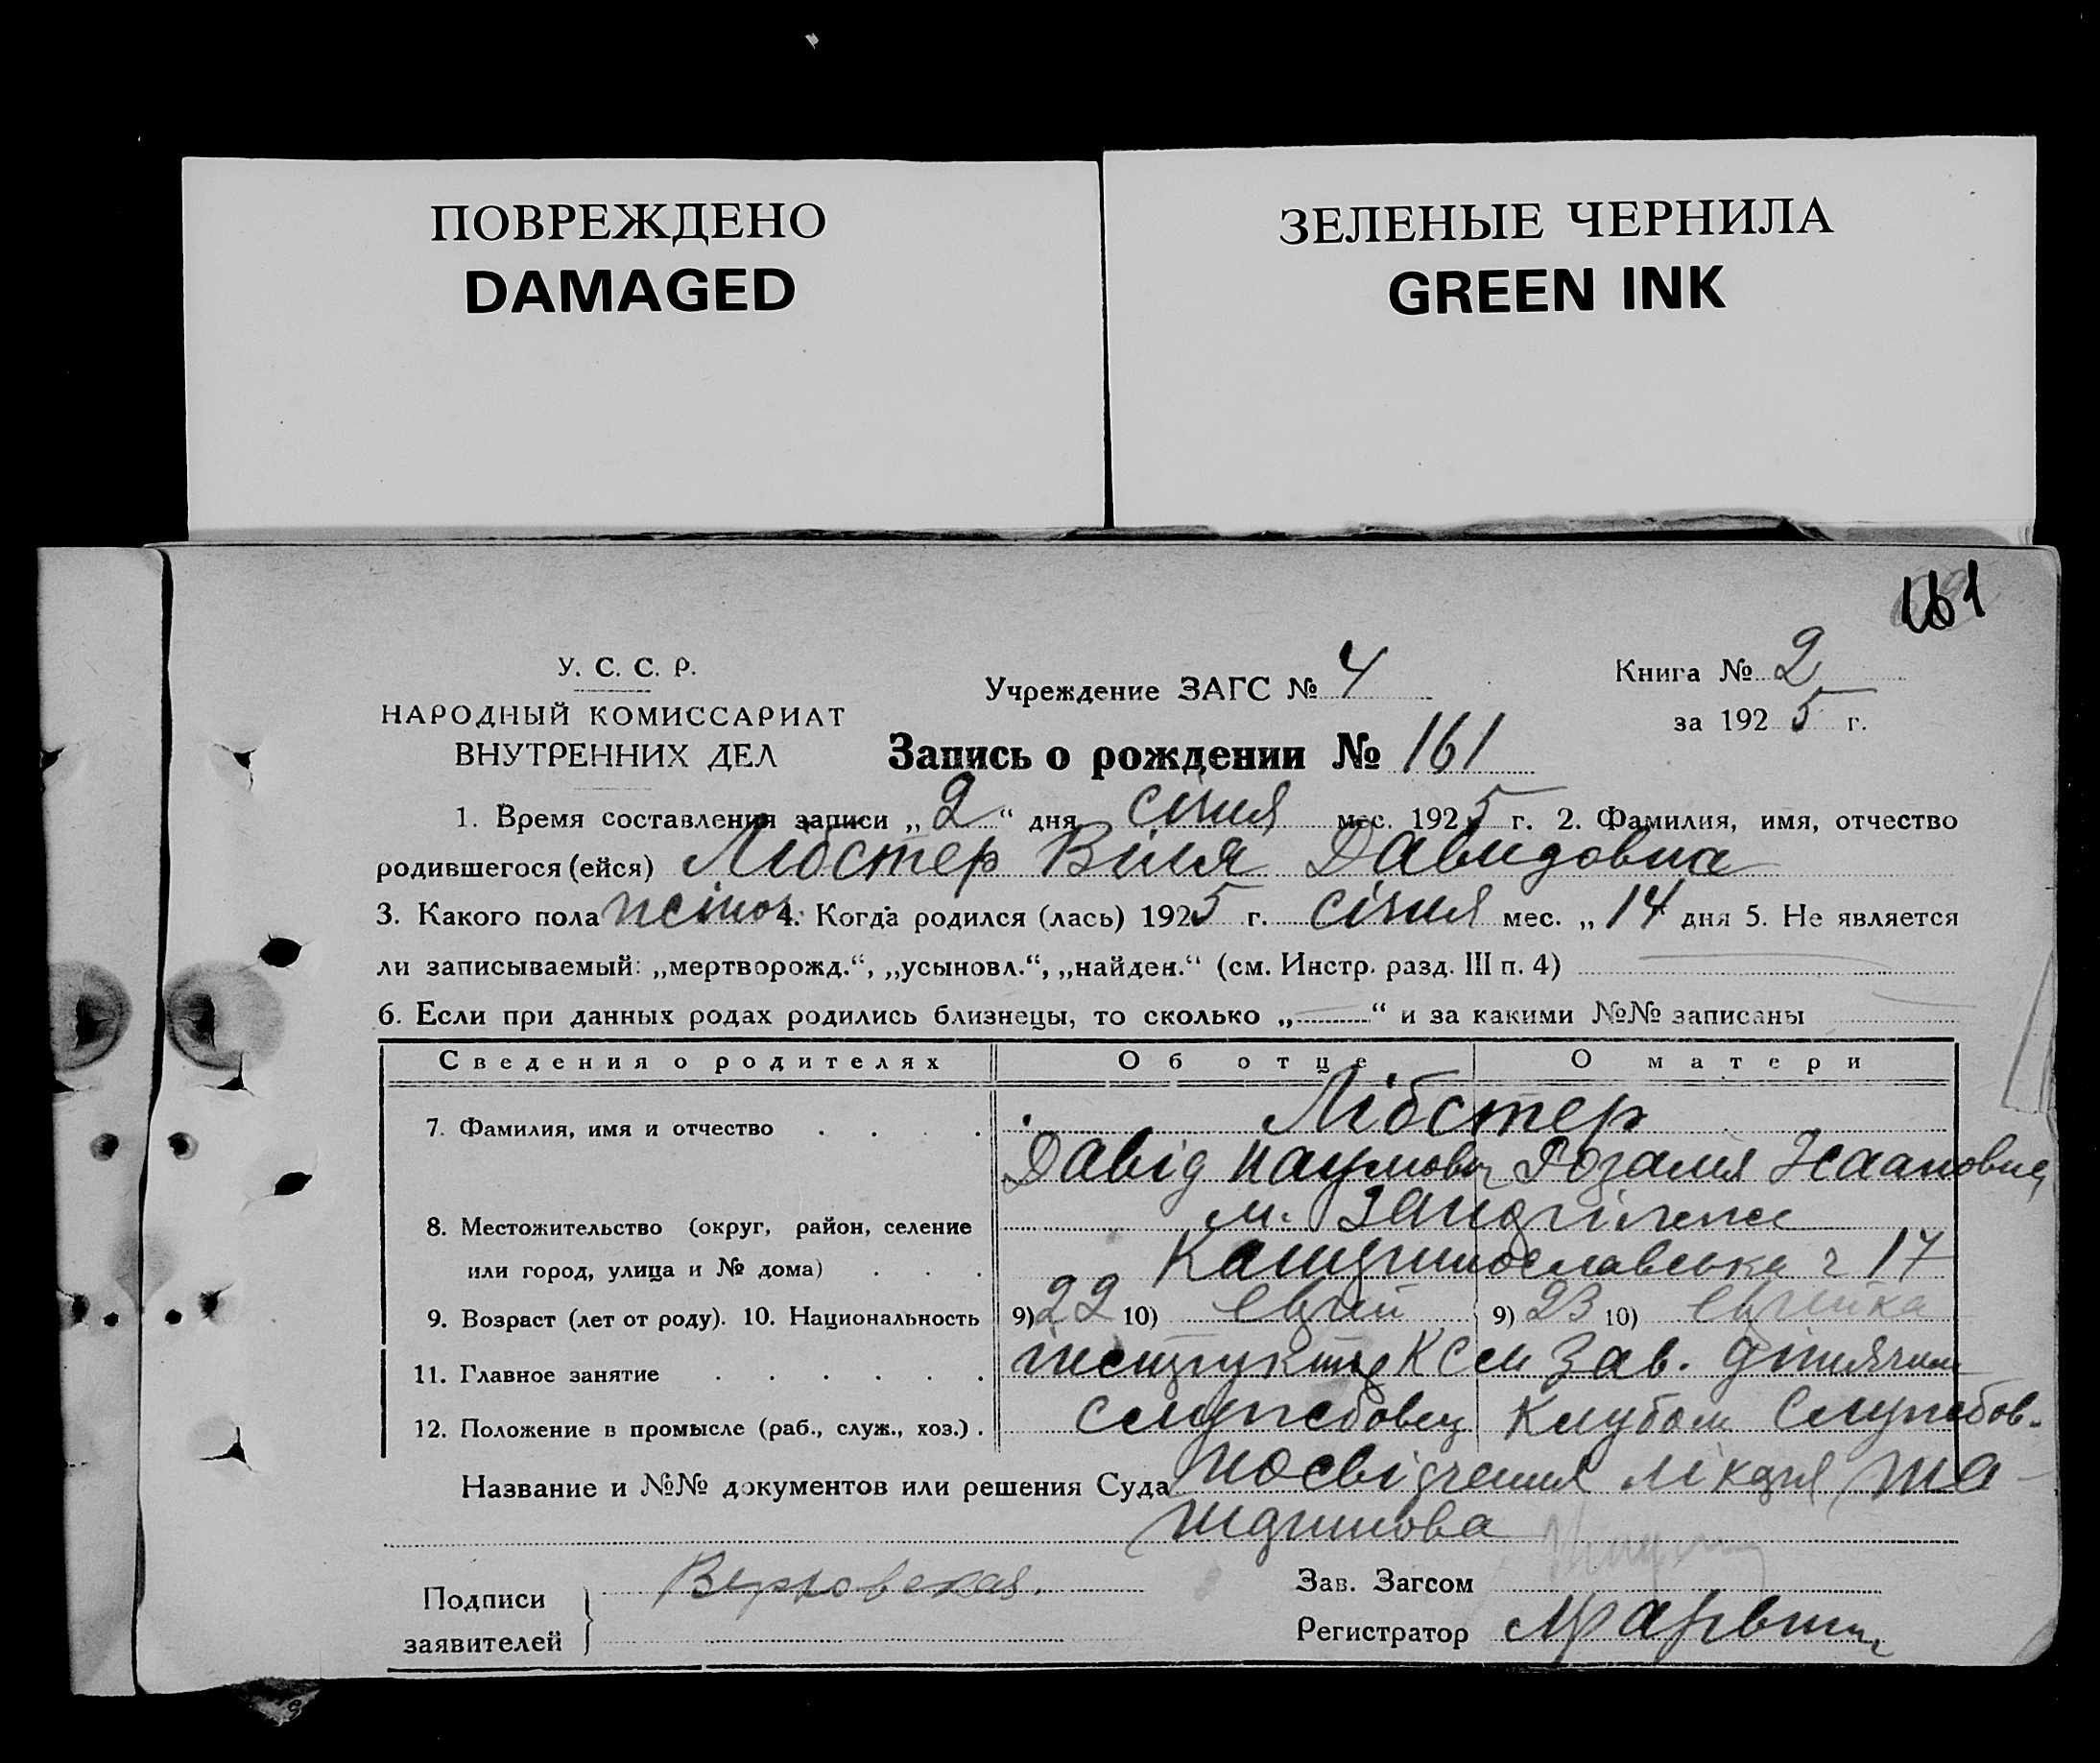 ПОВРЕЖДЕНО
DAMAGED
ЗЕЛЕНЫЕ ЧЕРНИЛА
GREEN INK
161
У. С. С. Р.
НАРОДНЫЙ КОМИССАРИАТ
ВНУТРЕННИХ ДЕЛ
Учреждение ЗАГС № 4
Книга № 2
за 1925 г.
Запись о рождении № 161
1. Время составления записи „2“ дня січня мес. 1925 г. 2. Фамилия, имя, отчество
родившегося (ейся) Лібстер Віля Давидовна
3. Какого пола жіноч. 4. Когда родился (лась) 1925 г. січня мес. „14 дня 5. Не является
ли записываемый: „мертворожд.“, „усыновл.“, „найден.“ (см. Инстр. разд. III п. 4)
6. Если при данных родах родились близнецы, то сколько „—“ и за какими №№ записаны
Сведения о родителях Об отце О матери
7. Фамилия, имя и отчество Лібстер
Давід Наумович Розалія
8. Местожительство (округ, район, селение м.
или город, улица и № дома) 17
9. Возраст (лет от роду). 10. Национальность 9) 22 10) Єврей 9) 23 10) Єврейка
11. Главное занятие КСМ Зав. дитячим
12. Положение в промысле (раб., служ., хоз.) Службовец Клубом Службов.
Название и №№ документов или решения Суда посвідчення лікаря
Подписи
заявителей
Зав. Загсом
Регистратор